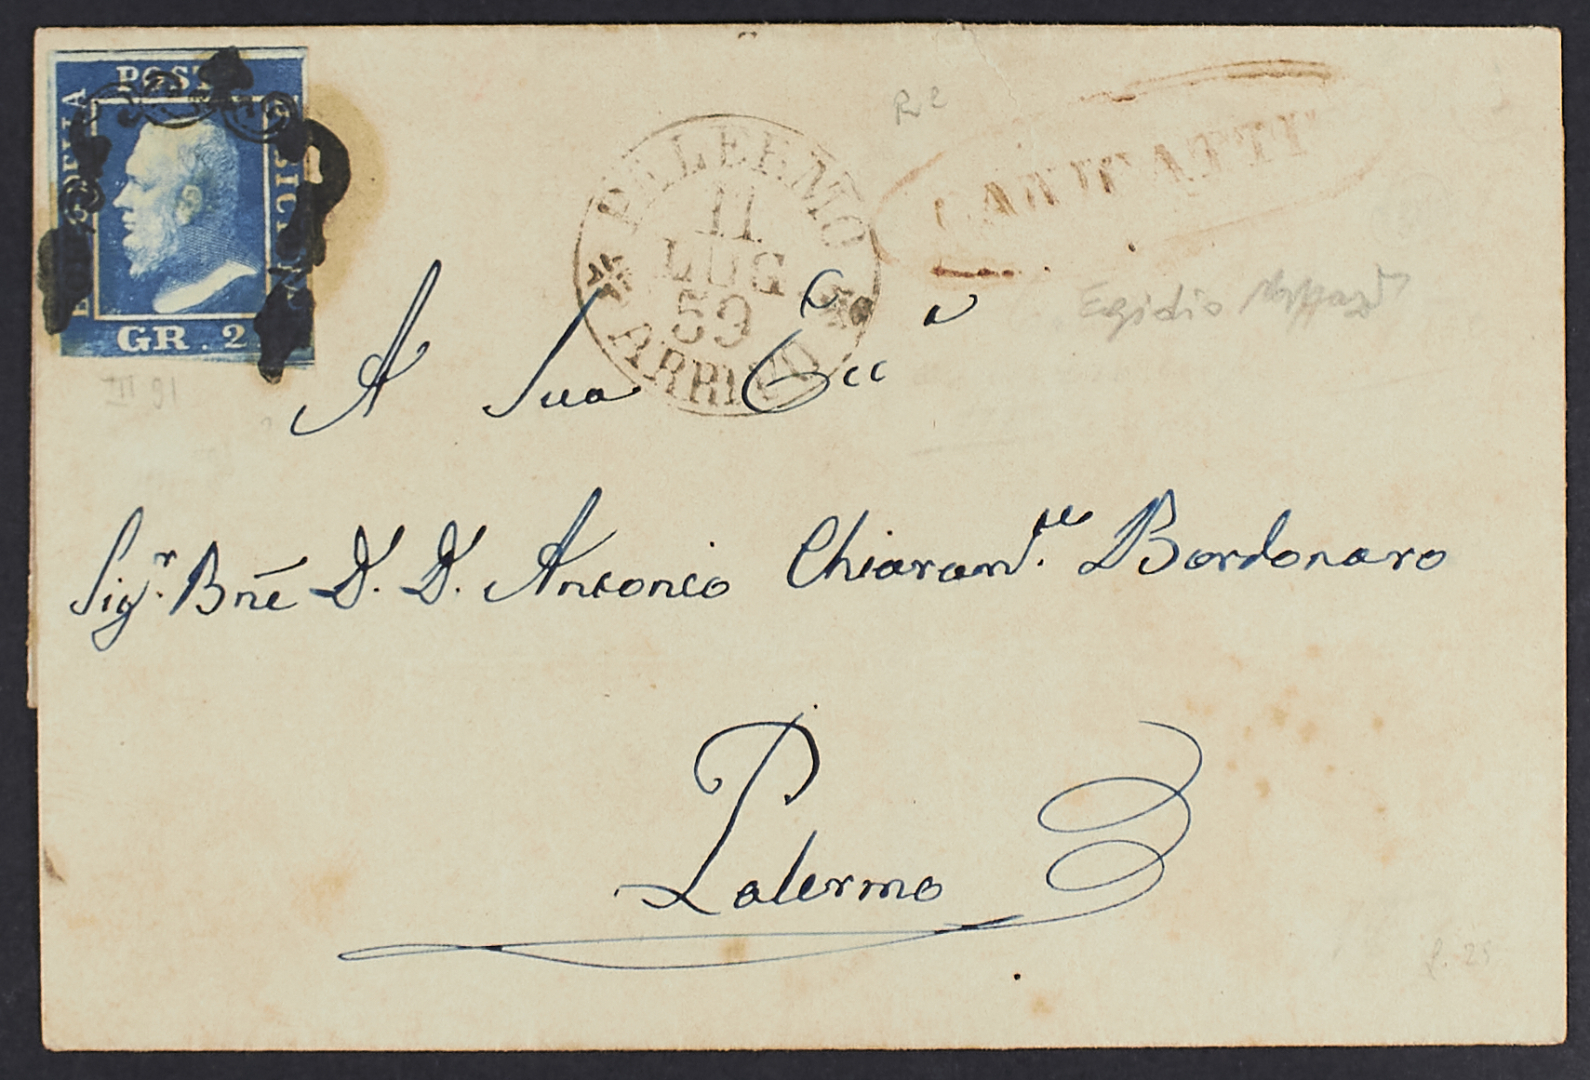 POSTA
BOLLO DELLA
SICILIA
GR. 2
PALERMO
11
LUG
59
ARRIVO
CANICATTI
R 2
Egidio
III 91
A Sua Ecc
Sig.r Bne D. D. Antonio Chiaram.te Bordonaro
Palermo